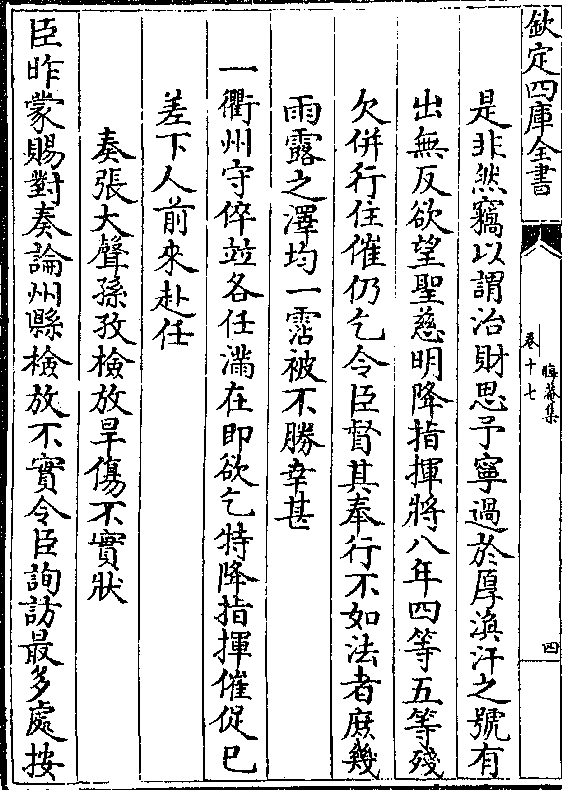 欽定四庫全書
晦菴集
卷十七
四
是非然竊以謂治財思予寧過於厚渙汗之號有
出無反欲望聖慈明降指揮將八年四等五等殘
欠併行住催仍乞令臣督其奉行不如法者庶幾
雨露之澤均一霑被不勝幸甚
一衢州守倅竝各任滿在即欲乞特降指揮催促已
差下人前來赴任
奏張大聲孫孜檢放旱傷不實狀
臣昨蒙賜對奏論州縣檢放不實令臣詢訪最多處按